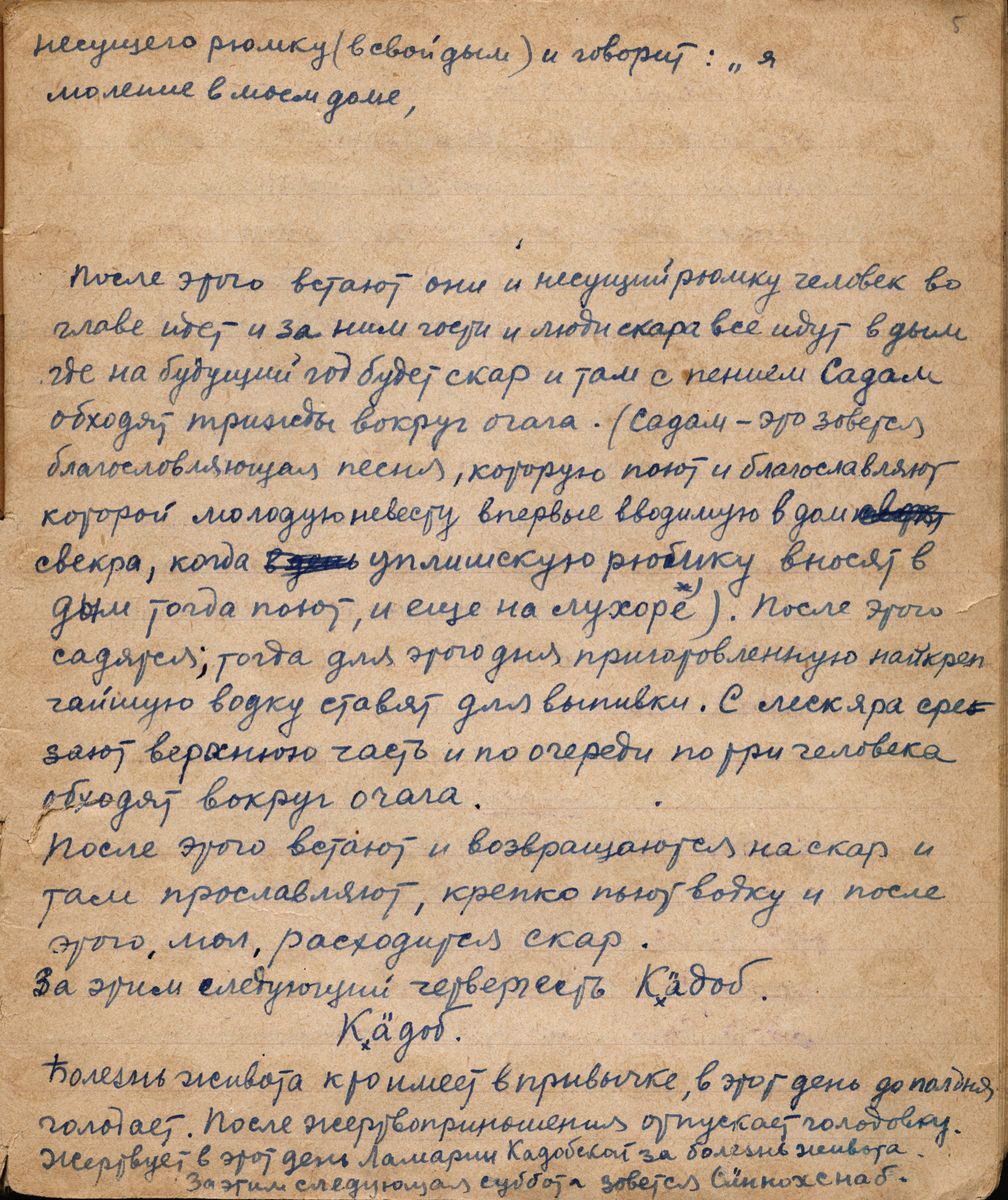 5
несущего рюмку (в свой дым) и говорит: „ я
моление в моем доме,
После этого встают они и несущий рюмку человек во
главе идет и за ним гости и люди скара все идут в дым
где на будущий год будет скар и там с пением Садам
обходят трижды вокруг очага. (Садам – это зовется
благословляющая песня, которую поют и благославляют
которой молодую невесту впервые вводимую в дом
свекра, когда уплишскую рюмку вносят в
дым тогда поют, и еще на лухоре*)). После этого
садятся; тогда для этого дня приготовленную найкреп
чайшую водку ставят для выпивки. С лескяра сре
зают верхнюю часть и по очереди по три человека
обходят вокруг очага.
После этого встают и возвращаются на скар и
там прославляют, крепко пьют водку и после
этого, мол, расходится скар.
За этим следующий четверг есть К̣äдоб.
К̣äдоб.
Болезнь живота кто имеет в привычке, в этот день до полдня
голодает. После жертвоприношения отпускает голодовку.
Жертвует в этот день Ламарии Кадобской за болезнь живота.
За этим следующая суббота зовется